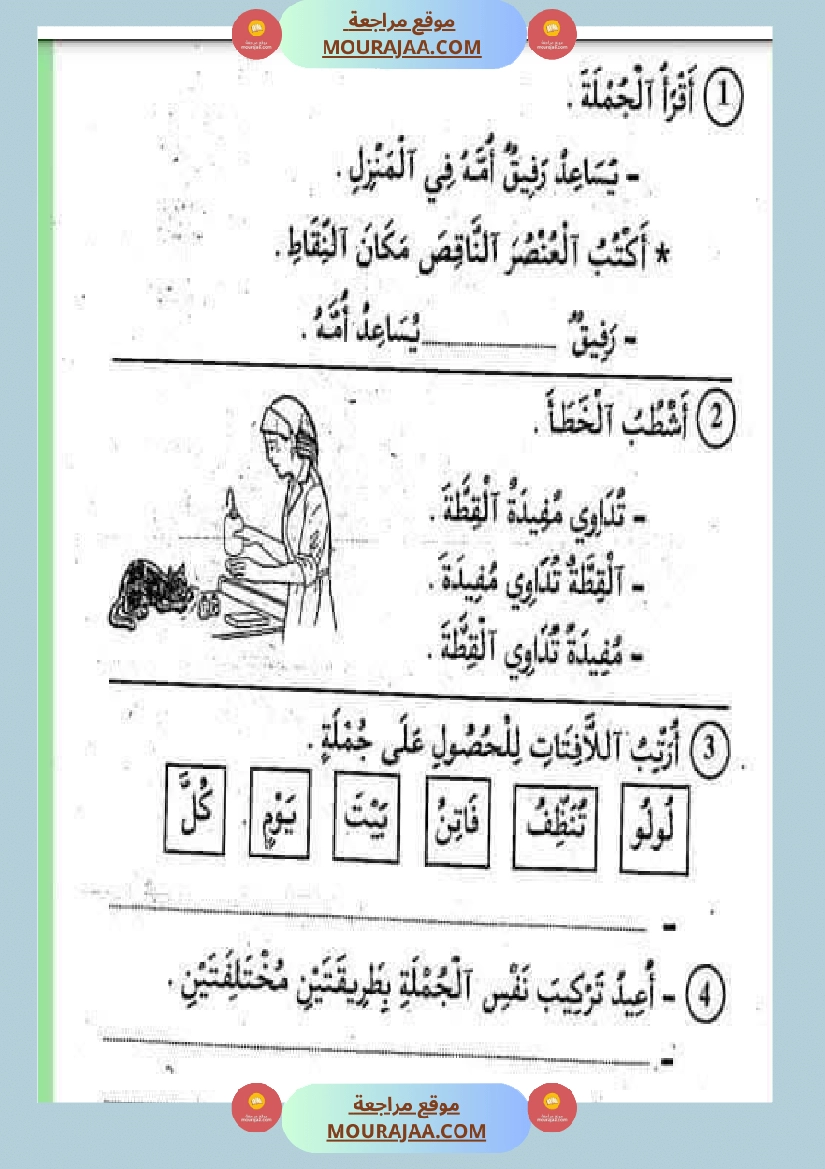 موقع مراجعة
MOURAJAA.COM
1 أَقْرَأُ ٱلْجُمْلَةَ .
- يُسَاعِدُ رَفِيقٌ أُمَّهُ فِي ٱلْمَنْزِلِ .
* أَكْتُبُ ٱلْعُنْصُرَ ٱلنَّاقِصَ مَكَانَ ٱلنِّقَاطِ .
- رَفِيقٌ ............ يُسَاعِدُ أُمَّهُ .
2 أَشْطُبُ ٱلْخَطَأَ .
- تُدَاوِي مُفِيدَةُ ٱلْقِطَّةَ .
- ٱلْقِطَّةُ تُدَاوِي مُفِيدَةَ .
- مُفِيدَةُ تُدَاوِي ٱلْقِطَّةَ .
3 أُرَتِّبُ ٱللاَّفِتَاتِ لِلْحُصُولِ عَلَى جُمْلَةٍ .
لُولُو تُنَظِّفُ فَاتِنُ بَيْتَ يَوْمٍ كُلَّ
4 - أُعِيدُ تَرْكِيبَ نَفْسِ ٱلْجُمْلَةِ بِطَرِيقَتَيْنِ مُخْتَلِفَتَيْنِ .
موقع مراجعة
MOURAJAA.COM